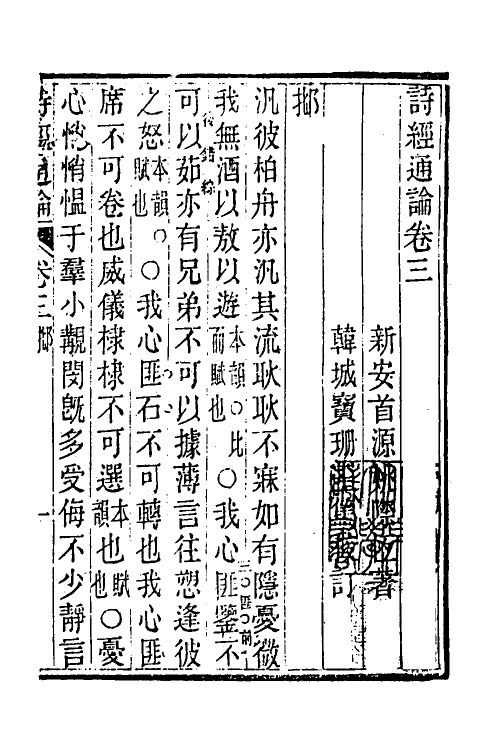 詩經通論卷三
新安首源姚際恆著
韓城寶珊
訂
邶
汎彼柏舟亦汎其流耿耿不寐如有隱憂微
我無酒以敖以遊本韻○比而賦也○我心匪鑒不
可以茹亦有兄弟不可以據薄言往愬逢彼
之怒本韻○賦也○我心匪石不可轉也我心匪
席不可卷也威儀棣棣不可選也本韻賦也○憂
心悄悄慍于羣小覯閔旣多受侮不少靜言
詩經通論 卷三 邶 一